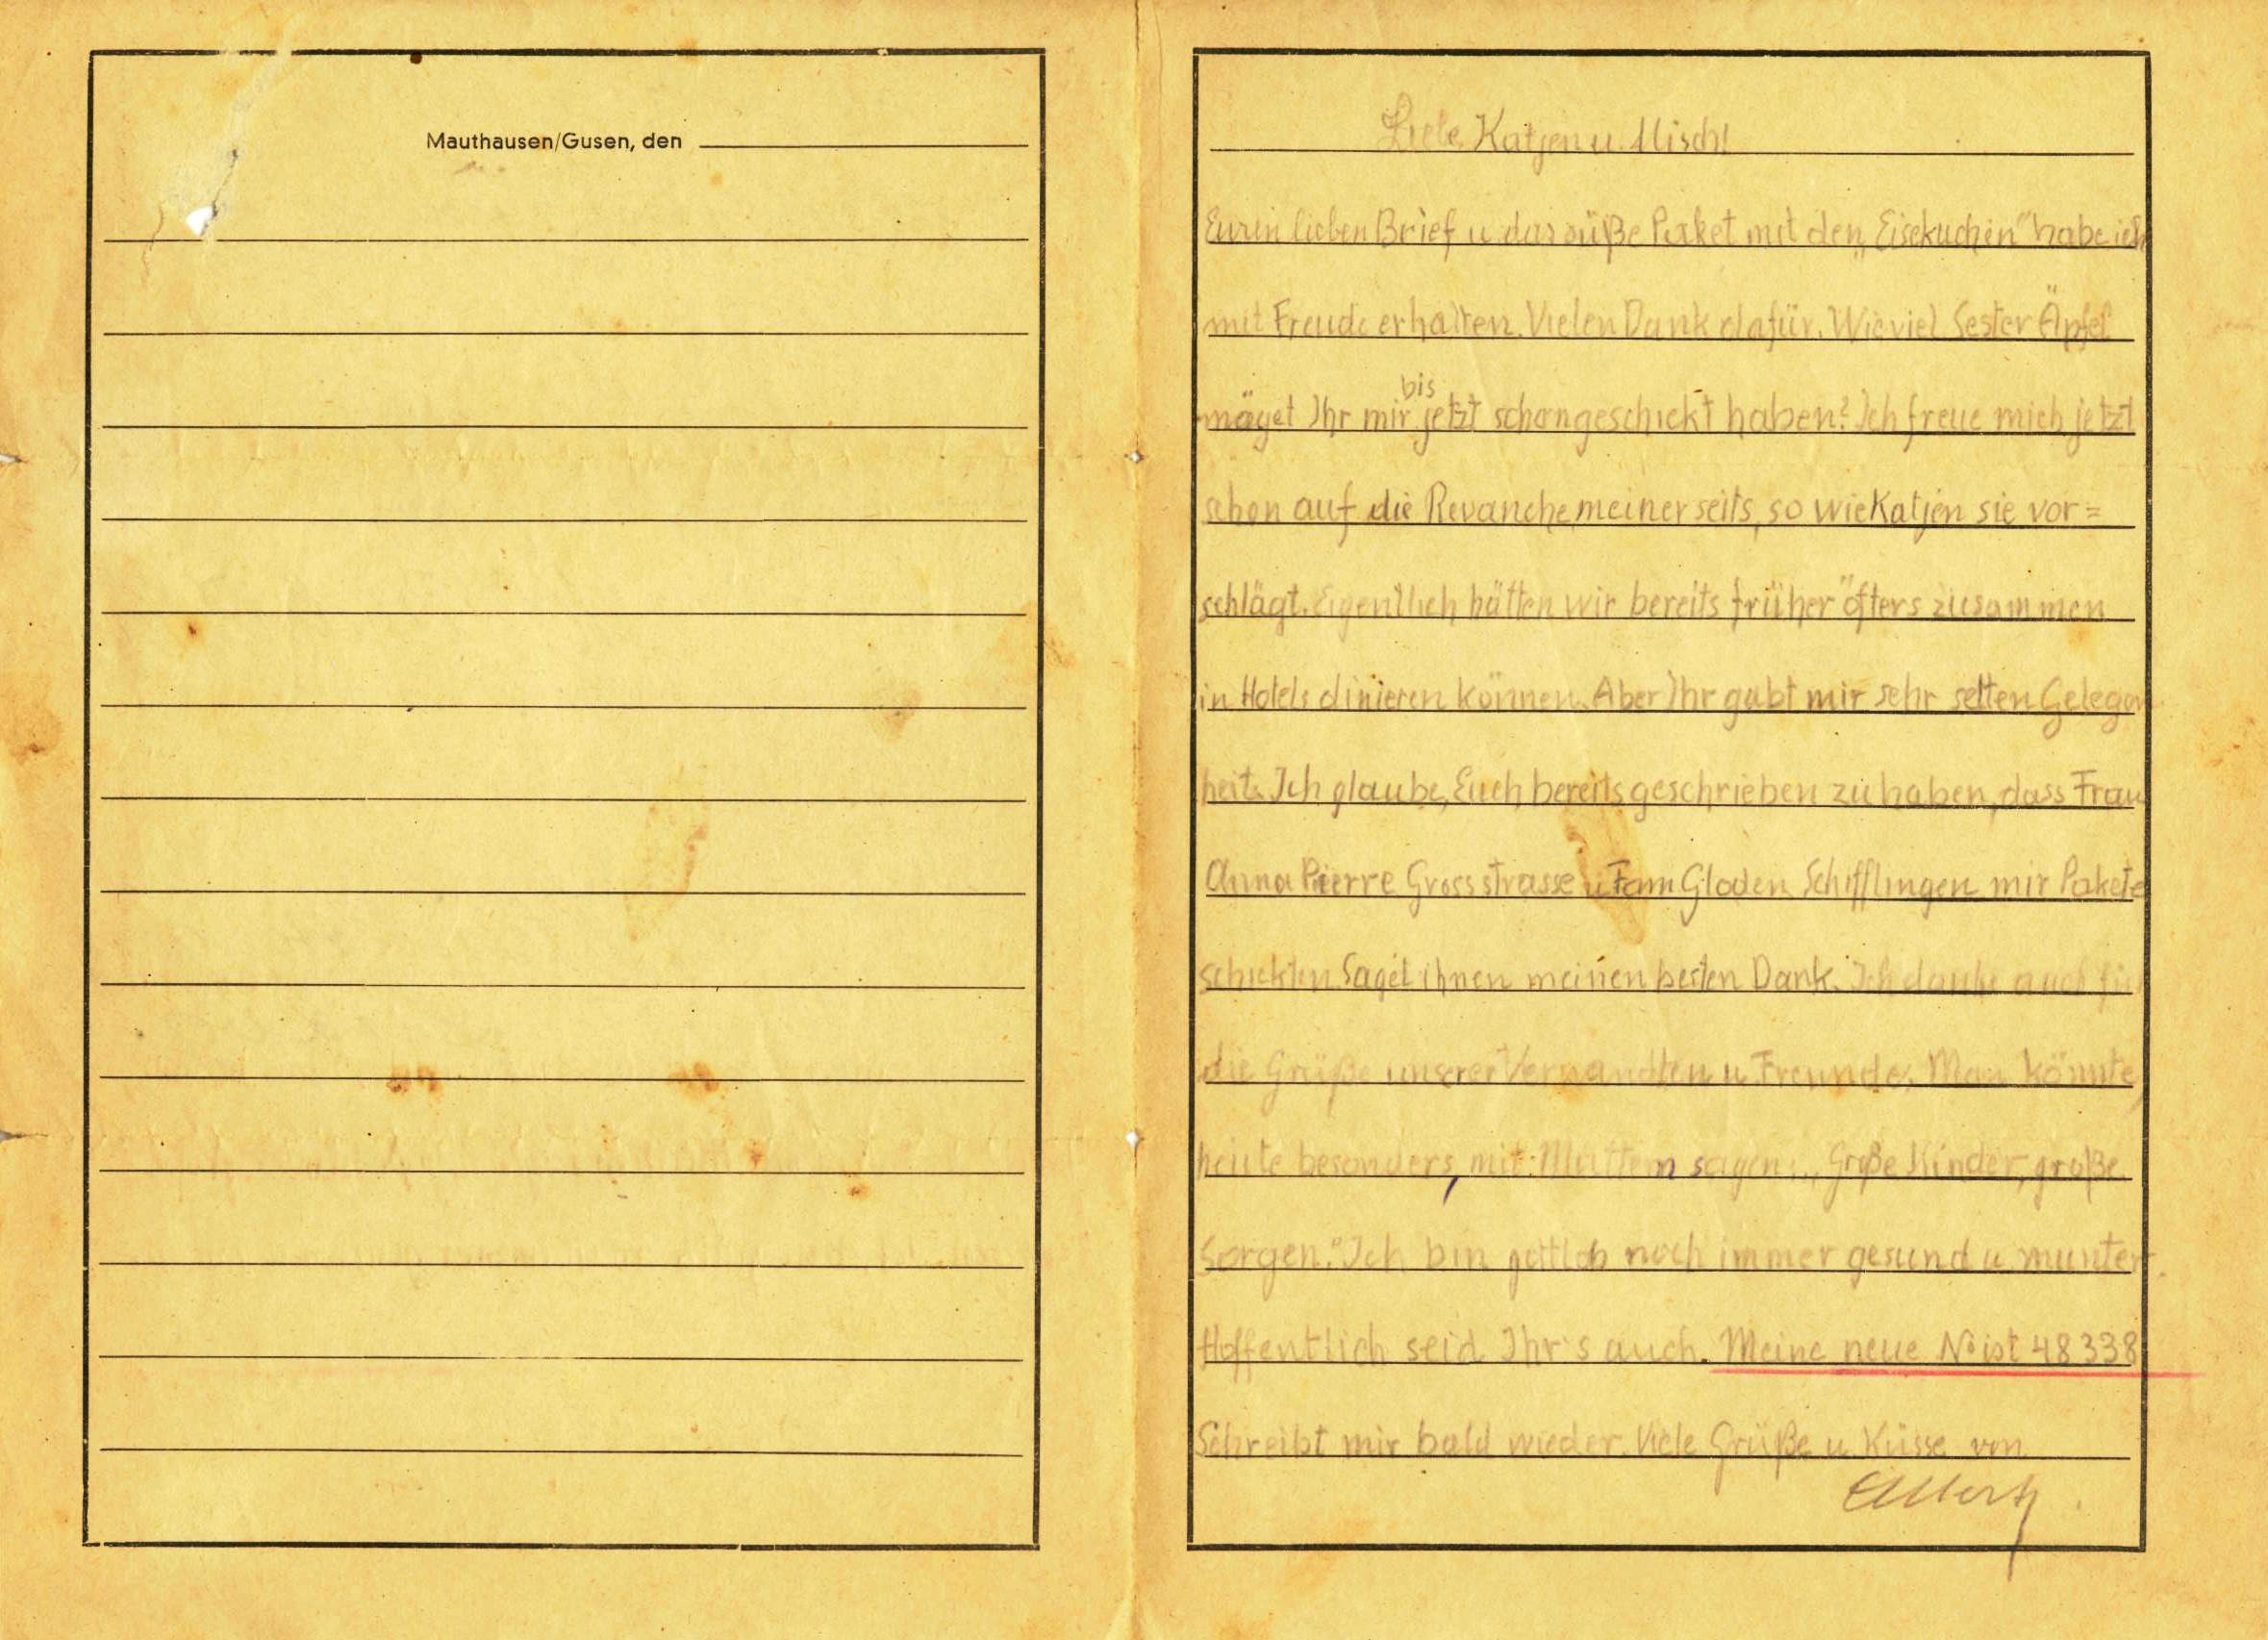 Mauthausen/Gusen, den
Liebe Katjen u. Misch!
Euren lieben Brief u das süße Paket mit den „Eisekuchen" habe ich
mit Freude erhalten. Vielen Dank dafür. Wieviel Sester Äpfel
möget Ihr mir bis jetzt schon geschickt haben? Ich freue mich jetzt
schon auf die Revanche meinerseits, so wie Katjen sie vor=
schlägt. Eigentlich hätten wir bereits früher öfters zusammen
in Hotels dinieren können. Aber Ihr gabt mir sehr selten Gelegen
heit. Ich glaube, Euch bereits geschrieben zu haben, dass Frau
Anna Pierre Grossstrasse u Fam Gloden Schifflingen mir Pakete
schickten Saget ihnen meinen besten Dank. Ich danke auch für
die Grüße unserer Verwandten u. Freunde. Man könnte,
heute besonders, mit Muttern sagen: „Große Kinder, große
Sorgen." Ich bin gottlob noch immer gesund u munter.
Hoffentlich seid Ihr's auch. Meine neue No ist 48338
Schreibt mir bald wieder. Viele Grüße u. Küsse von